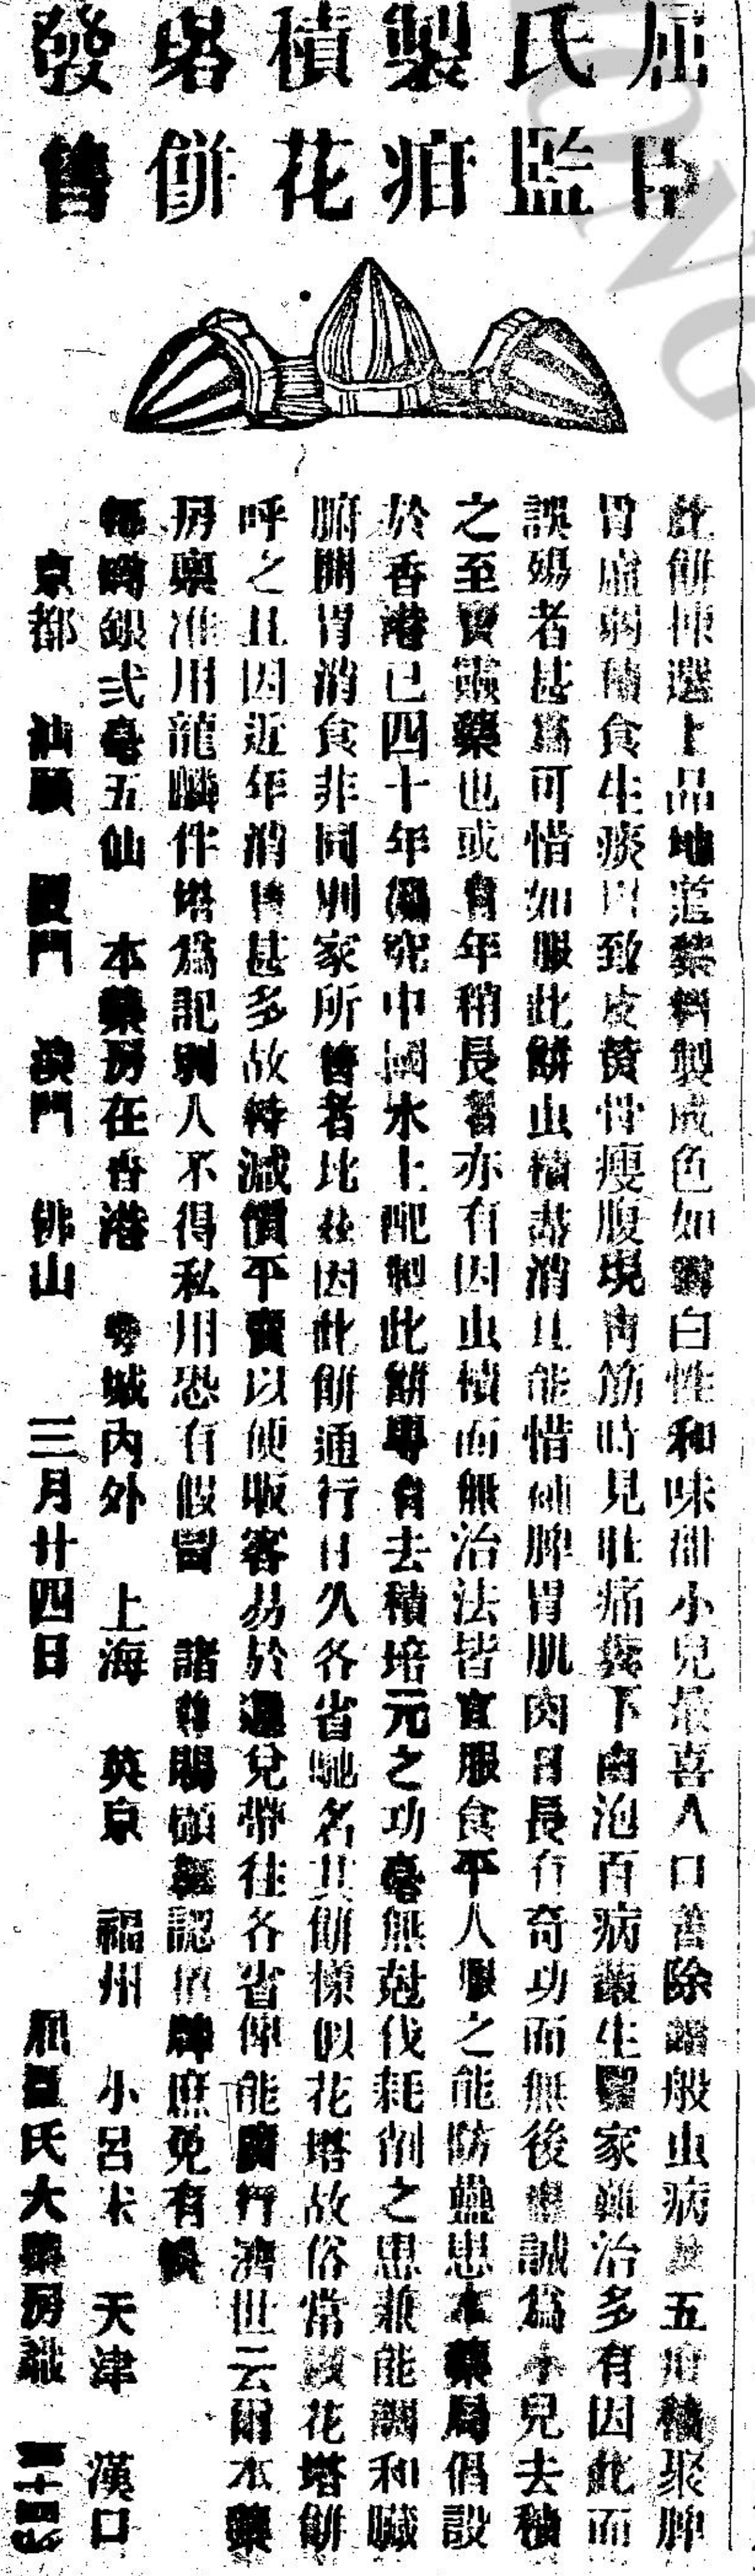 屈臣
氏監
製疳
積花
塔餅
發售
此餅揀選上品地道藥料製成色如霜白性和味甜小兒最喜入口善除諸般虫病及五疳積聚脾
胃虛弱積食生痰以致皮黃骨瘦腹現青筋時見肚痛糞下白泡百病叢生醫家難治多有因此而
誤殤者甚為可惜如服此餅虫積盡消且能惜補脾胃肌肉日長有奇功而無後患誠為小兒去積
之至寶靈藥也或有年稍長者亦有因虫積而無治法皆宜服食平人服之能防蠱患本藥局倡設
於香港已四十年深究中國水土配製此餅專有去積培元之功毫無尅伐耗削之患兼能調和臟
腑開胃消食非同別家所售者比茲因此餅通行日久各省馳名其餅樣似花塔故俗常以花塔餅
呼之且因近年消售甚多故特減價平賣以便販客易於運兌帶往各省俾能廣行濟世云爾本藥
房稟准用龍麟伴塔為記別人不得私用恐有假冒 諸尊賜顧 認 牌庶免有悞
每 銀弍毫五仙 本藥房在香港 粵城內外 上海 英京 福州 小呂宋 天津 漢口
京都 汕頭 廈門 澳門 佛山 三月廿四日 屈臣氏大藥房謹